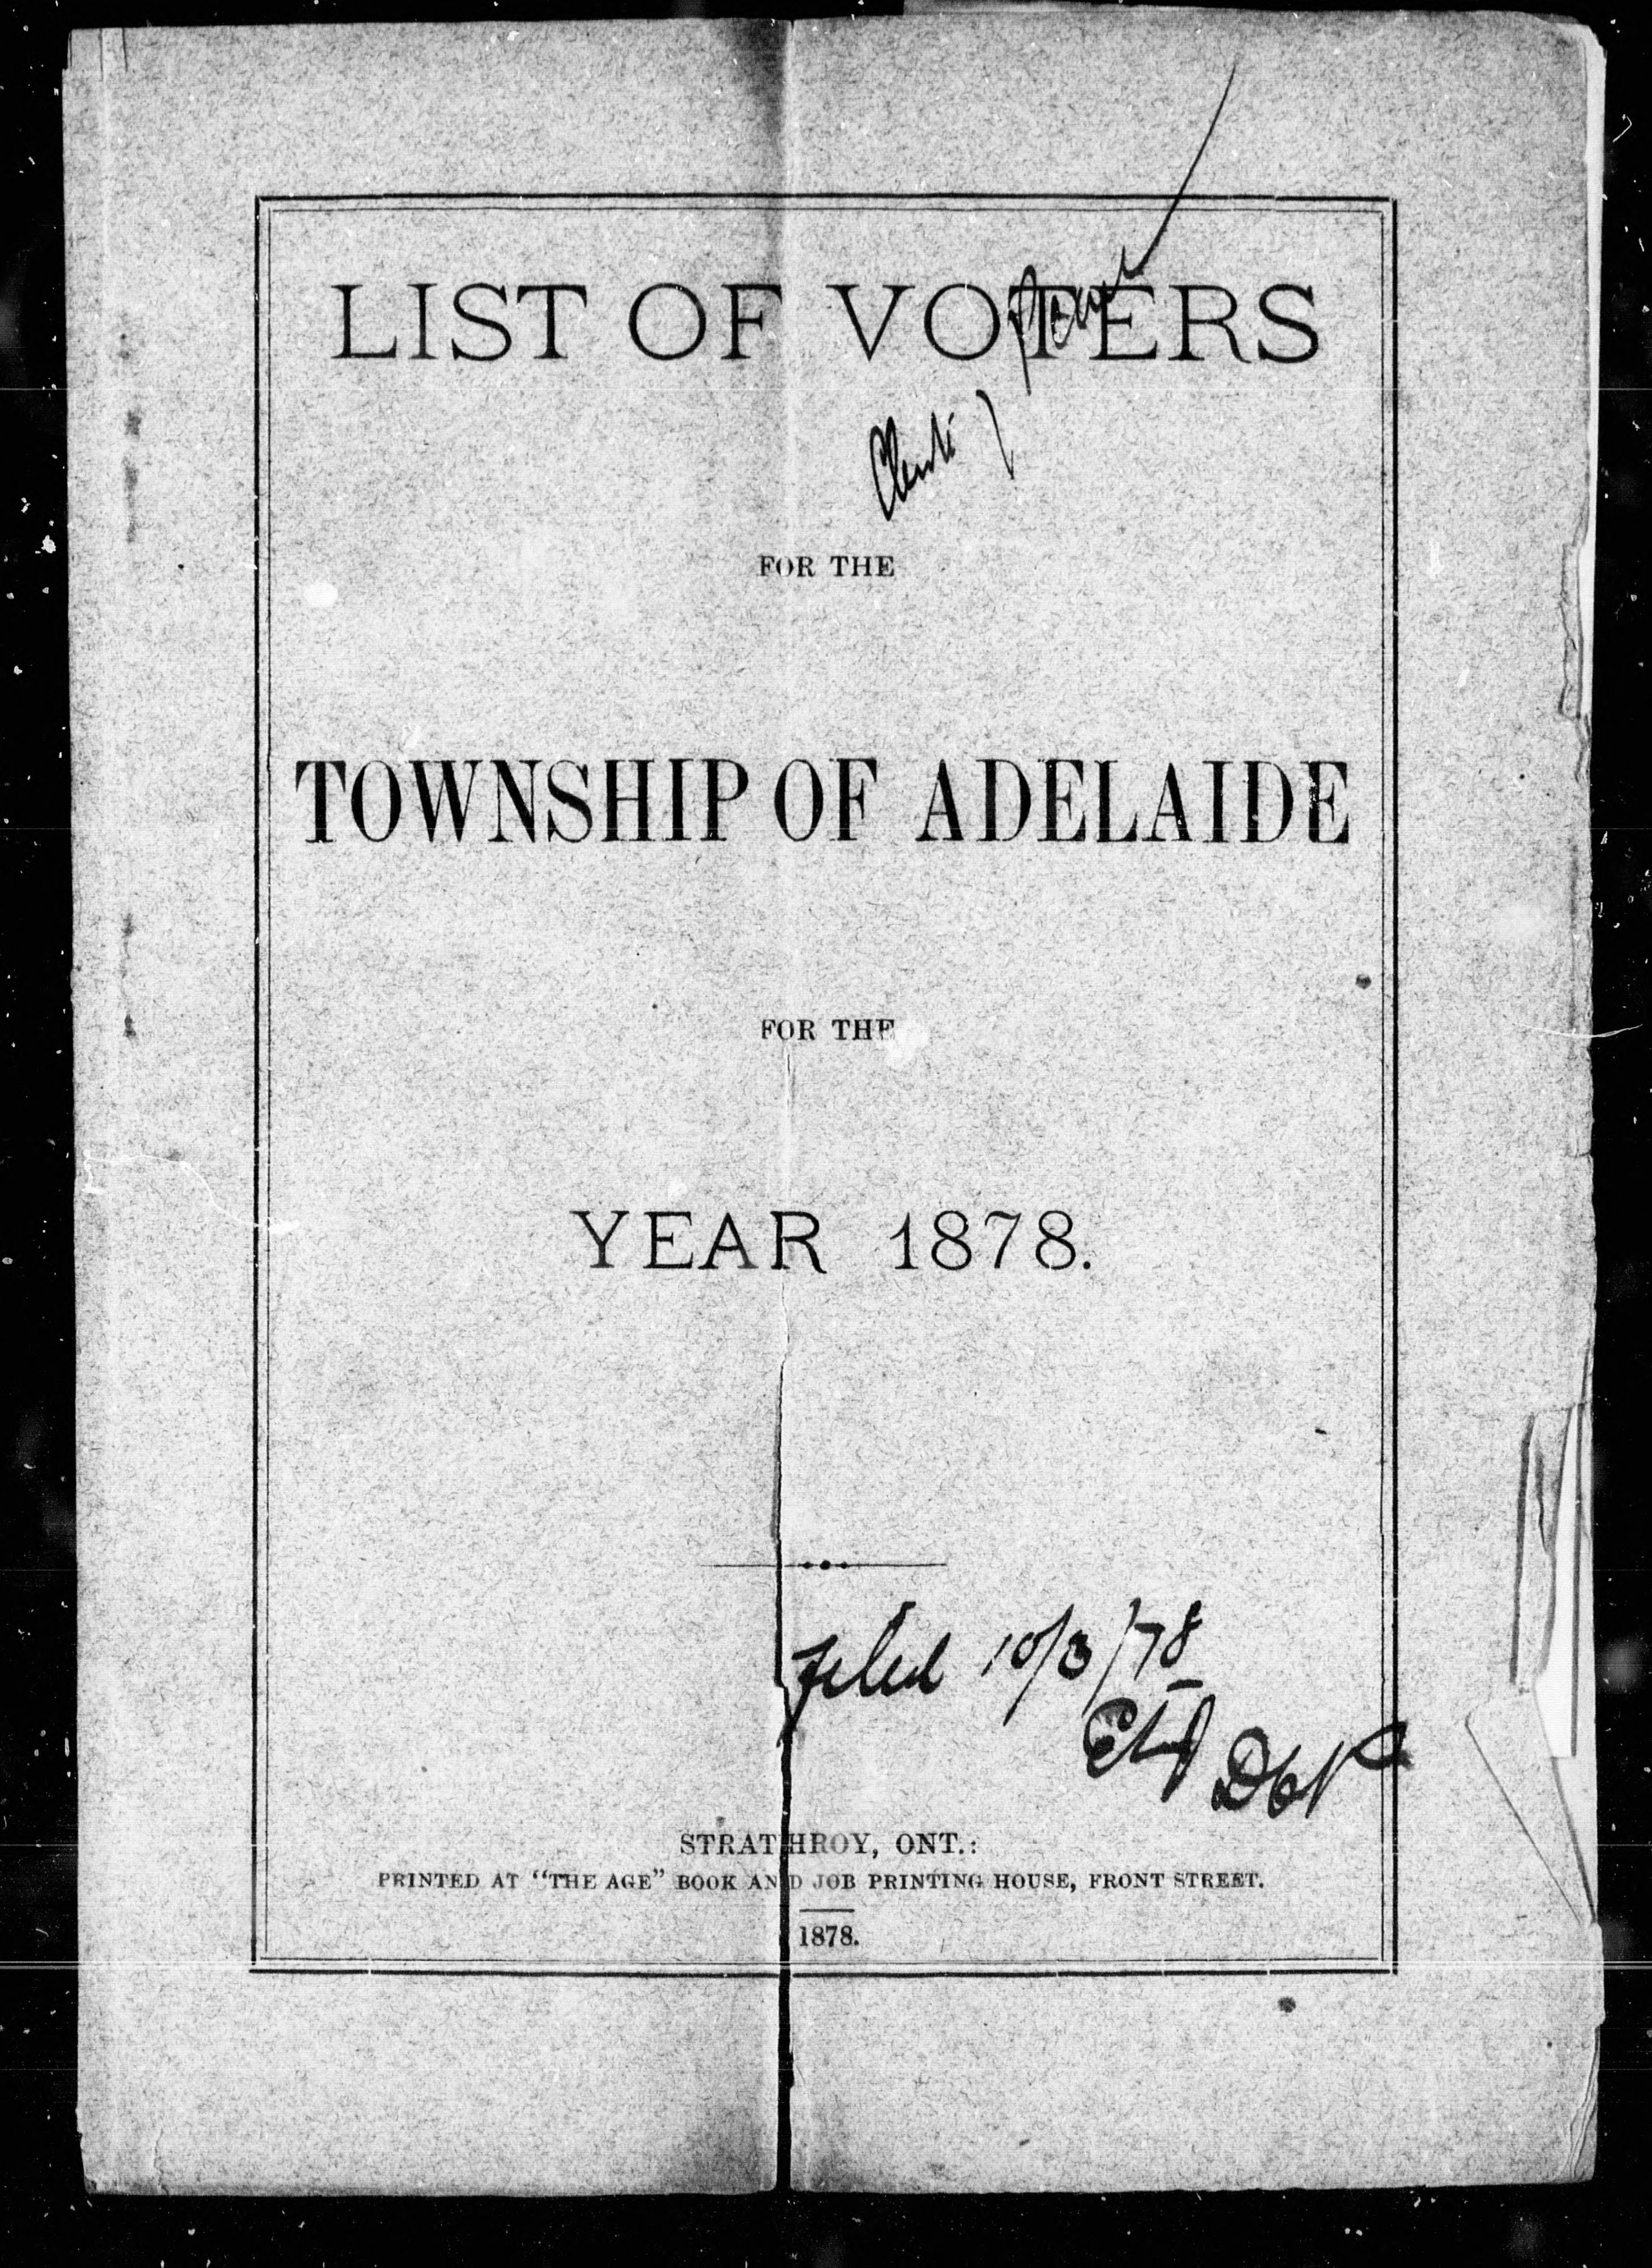 LIST OF VOTERS
FOR THE
TOWNSHIP OF ADELAIDE
FOR THE
YEAR 1878.
Filed 10/3/78
STRATHROY, ONT.:
PRINTED AT "THE AGE" BOOK AND JOB PRINTING HOUSE, FRONT STREET.
1878.